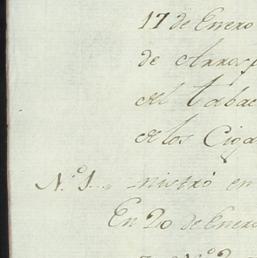 17 de Enero
de Arros
del tabac
de los Ciga
N.º 1.. nistró en
En 20 de Enero